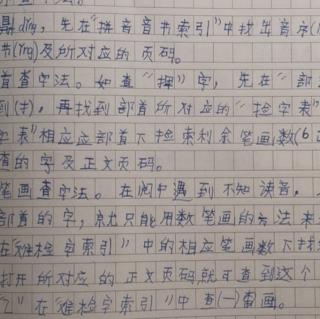 鼎dǐng，先在"拼音音书索引"中找出音序(
书(Yīng)及所对应的页码。
首查字法。如查"押"字，先在"部
到(扌)，再找到部首所对应的"检字表"
字表"相应应部首下检索利余笔画数(6
查的字及正文页码。
笔画查字法。在阅中遇到不知读音，
部首的字，就只能用数笔画的方法来
在"难检字索引"中的相应笔画数下找
打开所对应的正文页码就可查到这个
"乙"在"难检字索引"中查(一)画。